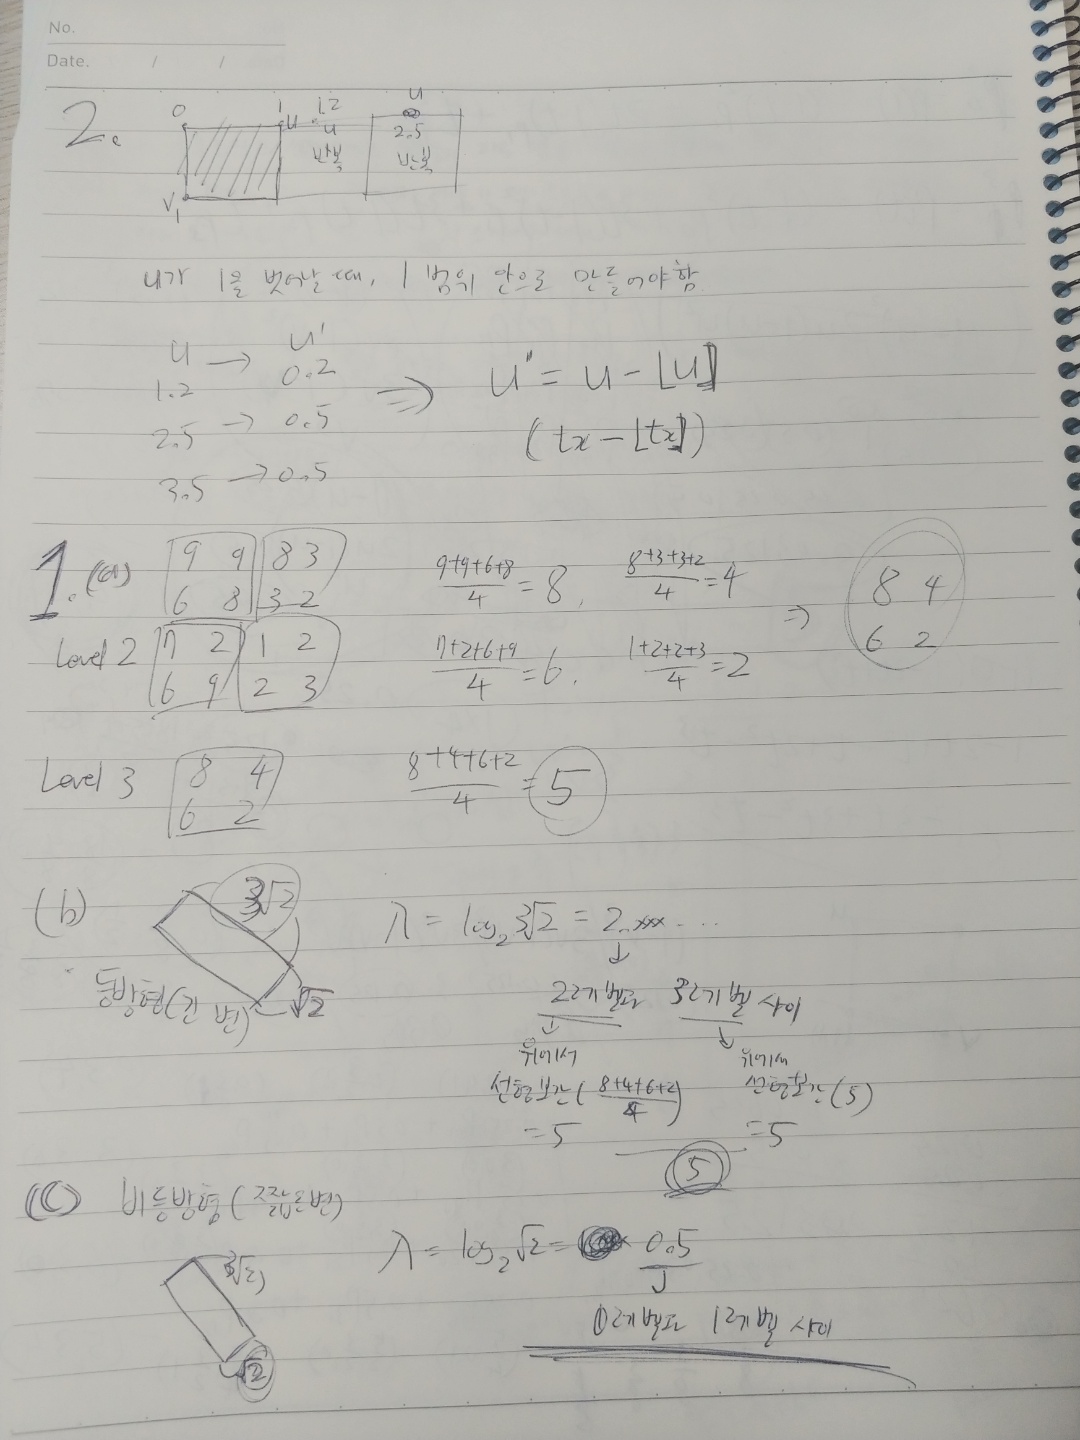 No.
Date. / /
2.
0 1 u 1.2 u
u 2.5
반복 반복
v 1
내가 1을 벗어날 때, 1 범위 안으로 만들어야함
u → u'
1.2 0.2
2.5 → 0.5
3.5 → 0.5
⇒ u' = u - ⌊u⌋
(tx - ⌊tx⌋)
1. (a) 9 9 8 3
6 8 3 2
Level 2 7 2 1 2
6 9 2 3
9+9+6+8/4 = 8, 8+3+3+2/4 = 4
7+2+6+9/4 = 6, 1+2+2+3/4 = 2
⇒ 8 4
6 2
Level 3 8 4
6 2
8+4+6+2/4 = 5
(b) 3√2
√2
등방형(긴 변)
λ = log₂ 3√2 = 2.xxx...
↓
2레벨과 3레벨 사이
↓ ↓
위에서 위에서
선형보간(8+4+6+2/4) 선형보간(5)
= 5 = 5
5
(c) 비등방형(짧은변)
3√2
√2
λ = log₂√2 = 0.5
↓
0레벨과 1레벨 사이